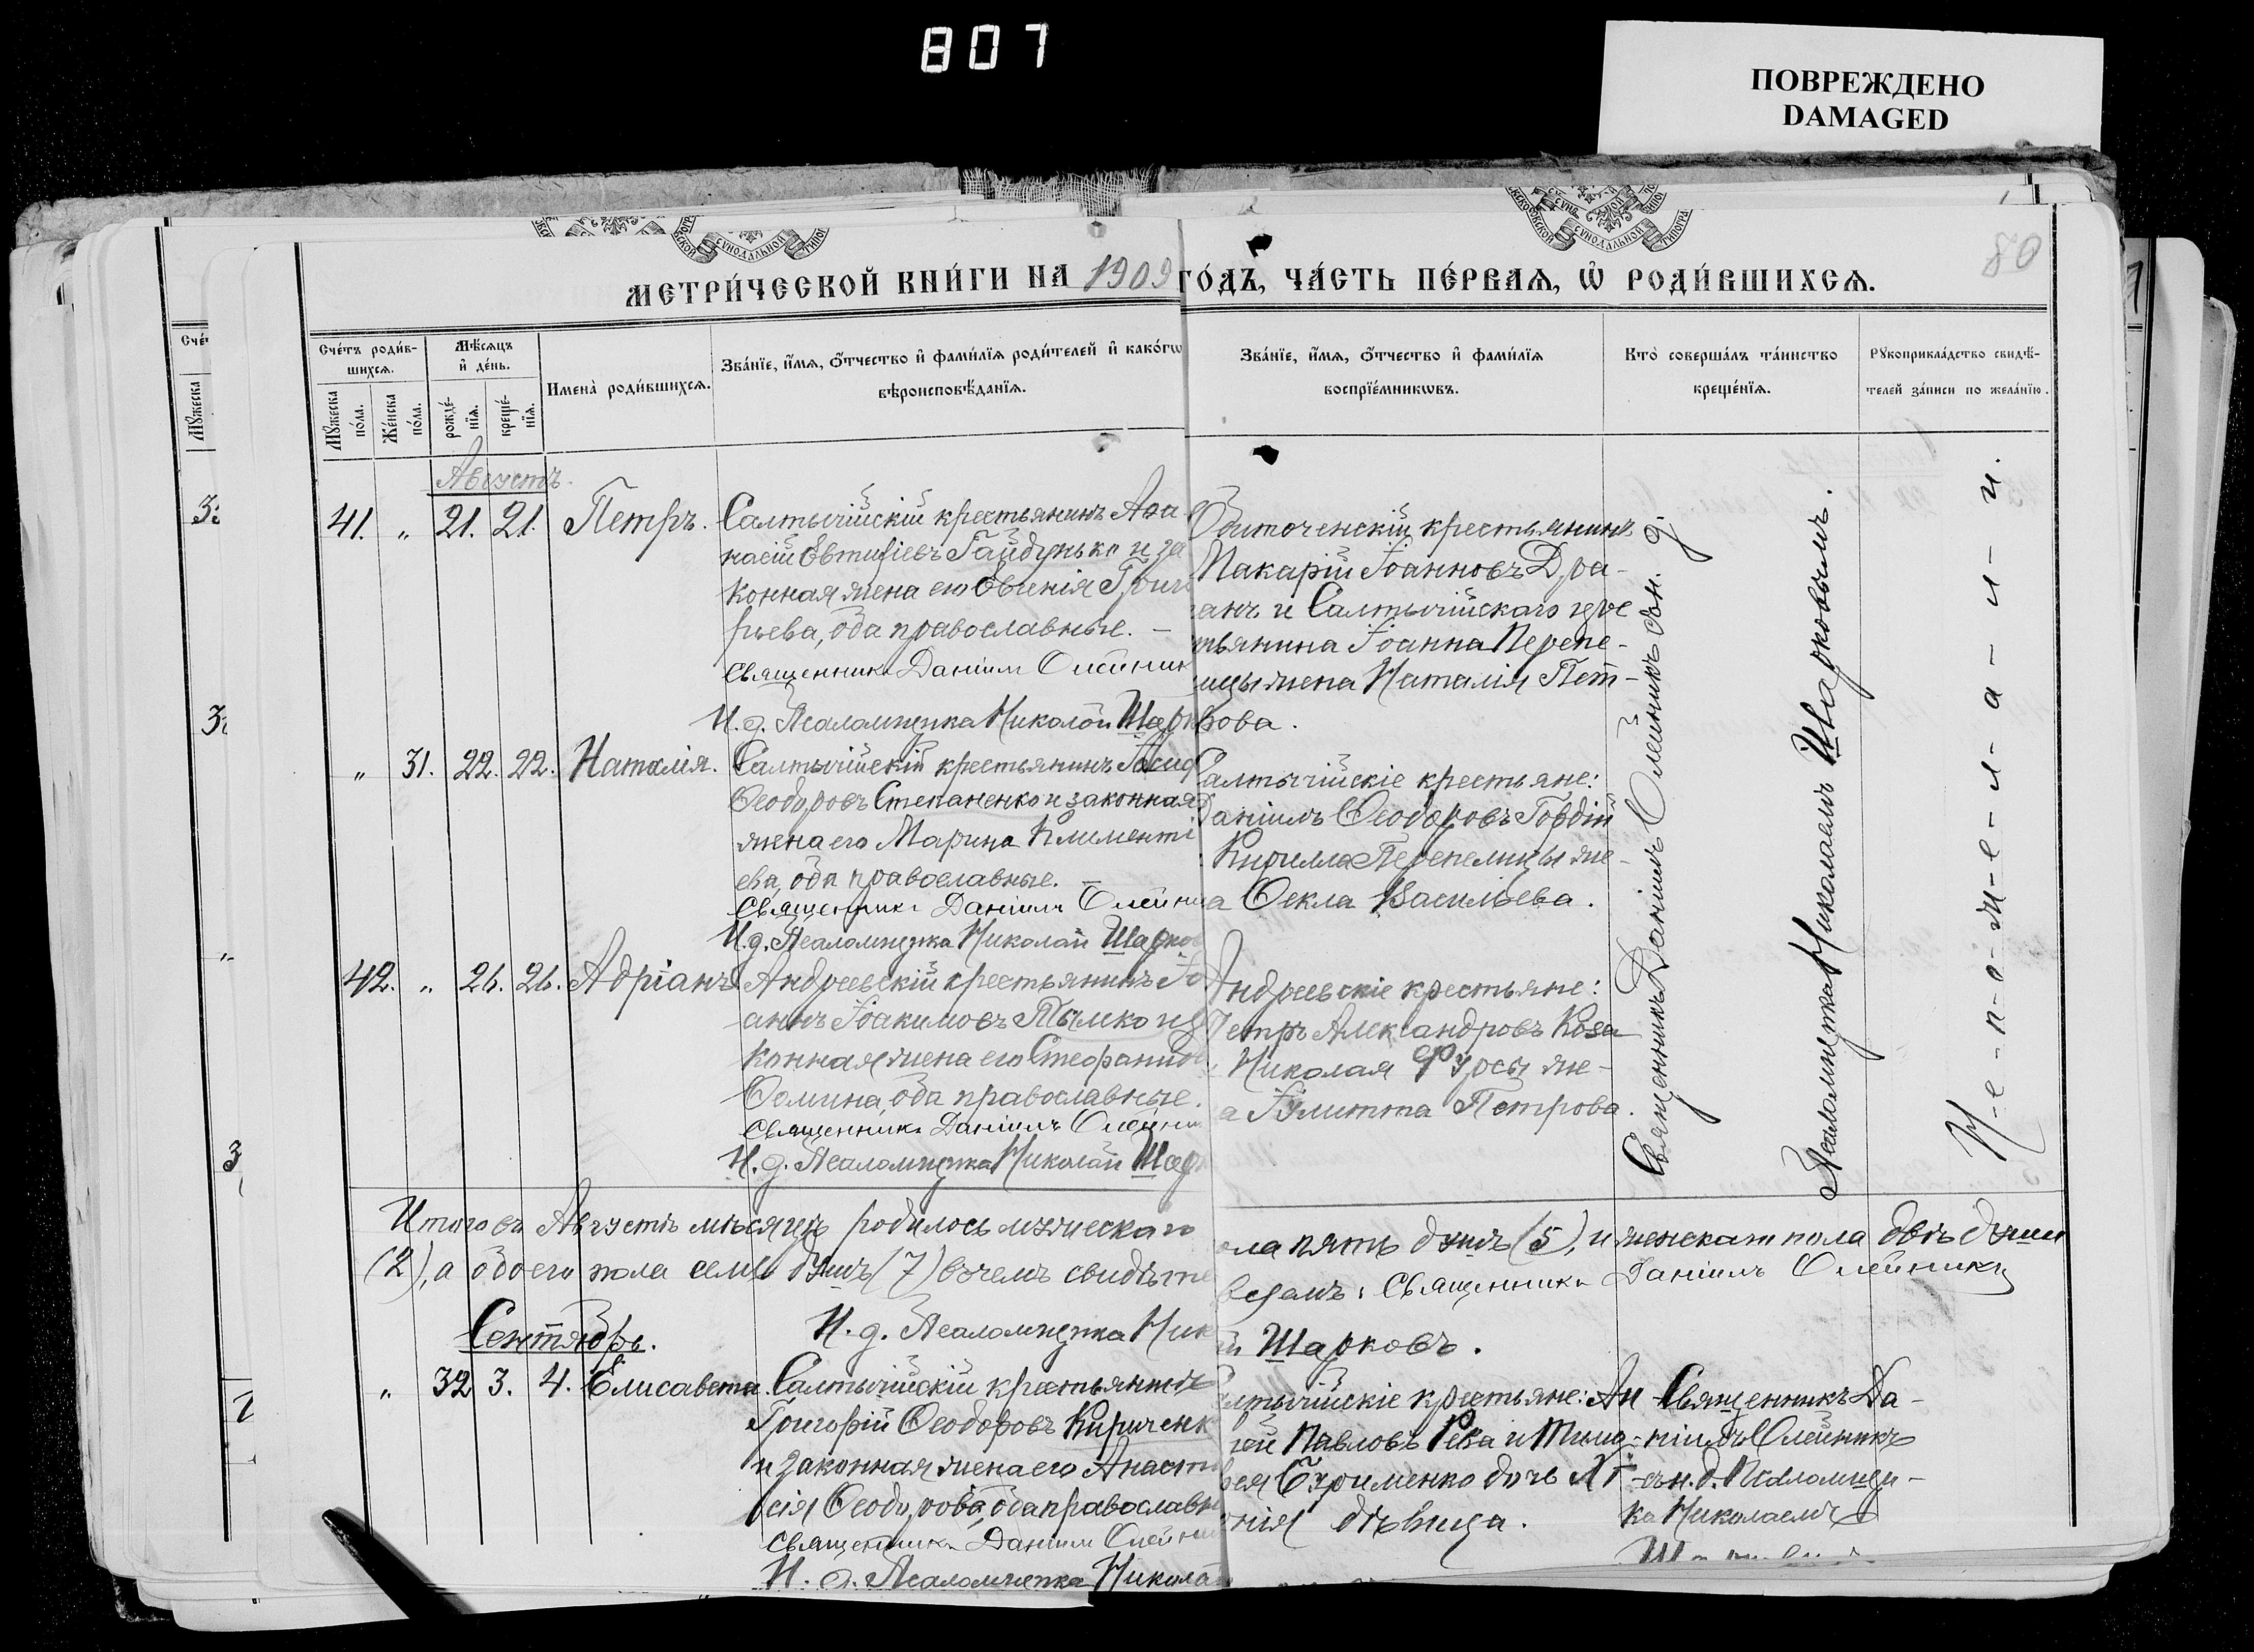 807
ПОВРЕЖДЕНО
DAMAGED
80
МЕТРИ́ЧЕСКОЙ КНИ́ГИ НА 1909 ГО́ДЪ, ЧА́СТЬ ПЕ́РВАЯ, Ѡ҆ РОДИ́ВШИХСЯ.
Сче́тъ роди́в-
шихся.
Мꙋ́жеска по́ла.
Же́нска по́ла.
Мѣ́сяцъ и҆ де́нь.
рожде́-
нїя.
креще́-
нїя.
Имена̀ роди́вшихся.
Зва́нїе, и҆́мя, ѻ҆́тчество и҆ фами́лїя роди́телей и҆ како́гѡ
вѣроисповѣ́данїя.
Зва́нїе, и҆́мя, ѻ҆́тчество и҆ фами́лїя
воспрїе́мникѡвъ.
Кто̀ соверша́лъ та́инство
креще́нїя.
Рꙋкоприкла́дство свидѣ́-
телей за́писи по жела́нїю.
Августъ.
41. „ 21. 21. Петръ.
Салтычійскій крестьянинъ Аѳа
насій Евтиѳіевъ Гайдунько и за
конная жена его Евгенія Григо
рьева, оба православные. —
Священникъ Даніилъ Олейник
И. д. Псаломщика Николай Шарк
Обиточенскій крестьянинъ
Макарій Іоанновъ Дра-
анъ и Салтычійскаго кре
тьянина Іоанна Перепе-
ицы жена Наталія Пет-
рова.
„ 31. 22. 22. Наталія.
Салтычійскій крестьянинъ
Ѳеодоровъ Степаненко и законная
жена его Марина Климентi
ева, оба православные. —
Священникъ Даніилъ Олейни
И. д. Псаломщика Николай Шарков
алтычійскіе крестьяне:
Даніилъ Ѳеодоровъ Гордій
Кирилла Перепелицы же-
а Ѳекла Васильева.
42. „ 26. 26. Адріанъ
Андреевскій крестьянинъ Іо
аннъ Іоакимовъ Тымко и з
конная жена его Стефанид
Ѳомина, оба православные.
Священникъ Даніилъ Олейни
И. д. Псаломщика Николай Шар
Андреевскіе крестьяне:
Петръ Александровъ Коза
Николая Фурсы же-
а Іулитта Петрова.
Священникъ Даніилъ Олейникъ съ и. д.
Псаломщика Николаемъ Шарковымъ.
Н-е-п-о-ж-е-л-а-л-и.
Итого въ Августѣ мѣсяцѣ родилось мужескаго ола пять душъ (5), и женскаго пола двѣ души
(2), а обоего пола семь душъ (7) въ чемъ свидѣте
Священникъ Даніилъ Олейникъ
И. д. Псаломщика Ник й Шарковъ.
Сентябрь.
„ 32 3. 4. Елисавета.
Салтычійскій крестьянинъ
Григорій Ѳеодоровъ Кириченк
и законная жена его Анаста
сія Ѳеодорова, оба православны
Священникъ Даніилъ Олейни
И. д. Псаломщика Николай
лтычійскіе крестьяне: Ан
рей Павловъ Рева и Тимо-
ѳея Ефименко дочь
дѣвица.
Священникъ Да-
ніилъ Олейникъ
съ и. д. Псаломщи-
ка Николаемъ